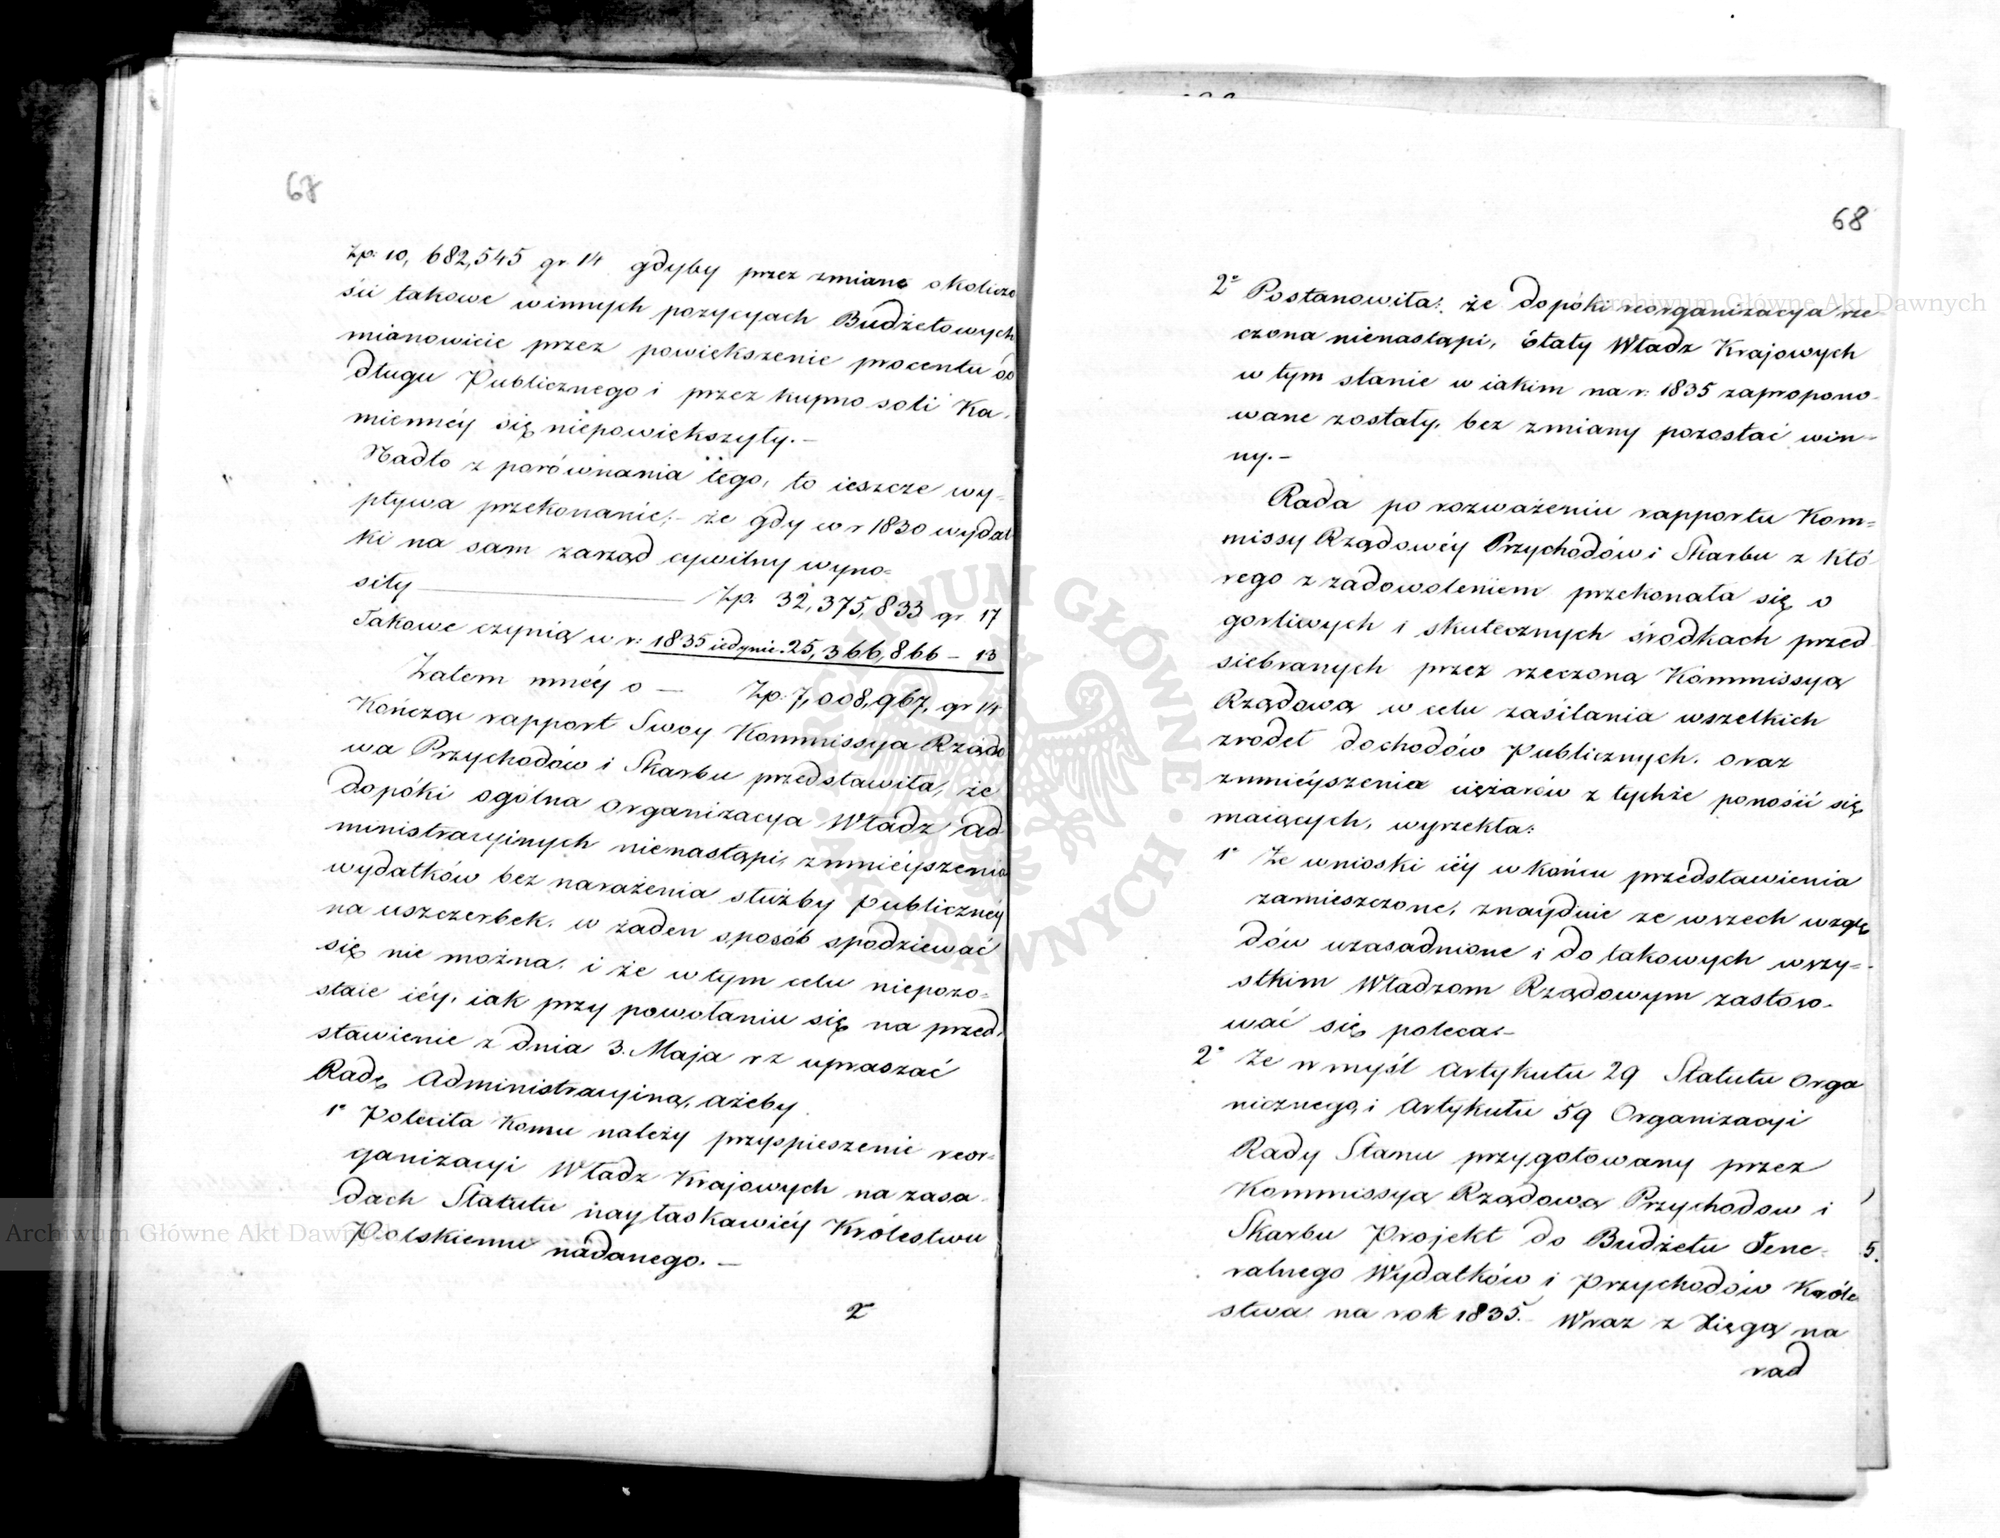 67
Zp: 10,682,545 gr. 14 gdyby przez zmianę okoliczo
ści takowe winnych pozycyach Budżetowych
mianowicie przez powiększenie procentu od
długu Publicznego i przez kupno soli Ka-
miennéy się niepowiększyły.—
Nadto z porównania tego, to ieszcze wy-
pływa przekonanie;— że gdy w r 1830 wydat
ki na sam zarząd cywilny wyno-
siły — Zp: 32,375,833 gr 17
Takowe czynią w r: 1835 iedynie. 25,366,866 — 13
Zatem mniéy o — Zp: 7,008,967, gr 14
Kończąc rapport Swoy Kommissya Rządo
wa Przychodów i Skarbu przedstawiła, że
dopóki ogólna organizacya Władz Ad
ministracyinych nienastąpi, zmnieyszenia
wydatków bez narażenia służby publicznéy
na uszczerbek, w żaden sposób spodziewać
się nie można, i że w tym celu niepozo-
staie iéy, iak przy powołaniu się na przed,
stawienie z dnia 3. Maja r z upraszać
Radę Administracyiną, ażeby
1° Poleciła Komu należy przyspieszenie reor-
ganizacyi Władz Krajowych na zasa-
dach Statutu nayłaskawiéy Królestwu
Polskiemu nadanego.—
2°
68
2° Postanowiła: że dopóki reorganizacya rze-
czona nienastąpi, Etaty Władz Krajowych
w tym stanie w iakim na r: 1835 zapropono-
wane zostały, bez zmiany pozostać win-
ny.—
Rada po rozważeniu rapportu Kom-
missy Rządowéy Przychodów i Skarbu z Któ
rego z zadowoleniem przekonała się o
gorliwych i skutecznych środkach przed
siebranych przez rzeczoną Kommissyą
Rządową w celu zasilania wszelkich
zrodeł dochodów Publicznych, oraz
zmnieyszenia ciężarów z tychże ponosić się
maiących, wyrzekła:
1° Że wnioski iéy w końcu przedstawienia
zamieszczone, znayduie ze wszech wzglę
dów uzasadnione i do takowych wszy-
stkim Władzom Rządowym zastoso-
wać się poleca:—
2° Że w myśl Artykułu 29 Statutu Orga
nicznego i Artykułu 59 Organizacyi
Rady Stanu przygotowany przez
Kommissyą Rządową Przychodow i
Skarbu Projekt do Budżetu Jene-
ralnego Wydatków i Przychodów Króle
stwa na rok 1835. Wraz z Xięgą na
rad
5.
Archiwum Główne Akt Dawnych
Archiwum Główne Akt Dawnych
ARCHIWUM GŁÓWNE AKT DAWNYCH